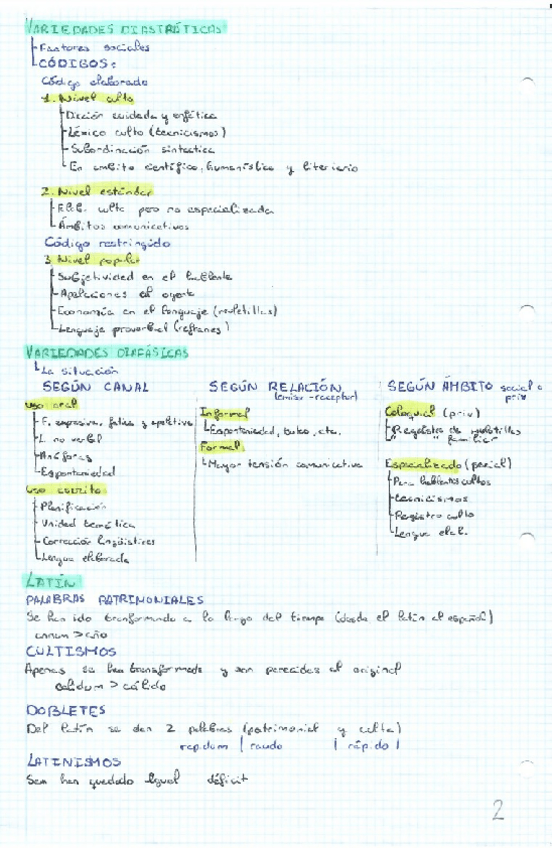 VARIEDADES DIASTRÁTICAS
Factores sociales
CÓDIGOS:
Código elaborado
1. Nivel culto
Dicción cuidada y enfática
Léxico culto (tecnicismos)
Subordinación sintáctica
En ámbito científico, humanístico y literario
2. Nivel estándar
culta pero no especializada
Ámbitos comunicativos
Código restringido
3 Nivel popular
Subjetividad en el hablante
Apelaciones al oyente
Economía en el lenguaje (muletillas)
Lenguaje proverbial (refranes)
VARIEDADES DIAFÁSICAS
La situación
SEGÚN CANAL
uso oral
F. expresiva, fática y apelativa
L. no verbal
Anáforas
Espontaneidad
uso escrito
Planificación
Unidad temática
Corrección lingüística
Lengua elaborada
SEGÚN RELACIÓN
(emisor-receptor)
Informal
Espontaneidad, bulos, etc.
Formal
Mayor tensión comunicativa
SEGÚN ÁMBITO social o
priv
Coloquial (priv)
Registro de muletillas
" " familiar
Especializado (social)
Para hablantes cultos
tecnicismos
Registro culto
Lengua elab.
LATÍN
PALABRAS PATRIMONIALES
Se han ido transformando a lo largo del tiempo (desde el latín al español)
annum > año
CULTISMOS
Apenas se han transformado y son parecidas al original
calidum > cálido
DOBLETES
Del latín se dan 2 palabras (patrimonial y culta)
rapidum | raudo | rápido |
LATINISMOS
Sem han quedado igual déficit
2